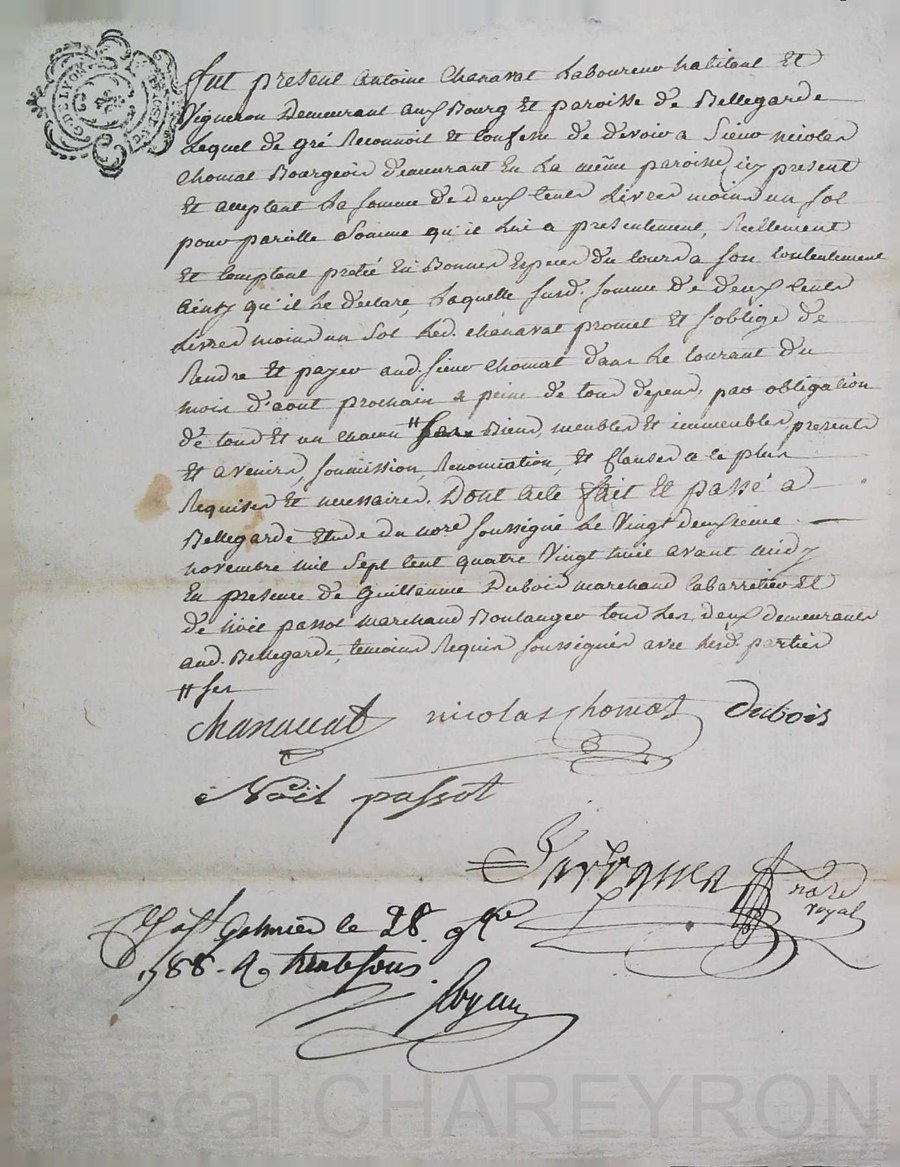 G. DE LYON
fut present Antoine Chanavat Laboureur habitant et
Vigneron Demeurant aux Bourg et paroisse de Bellegarde
Lequel de gré Reconnoit et confesse de devoir a Sieur nicolas
Chomat Bourgeois demeurant En La même paroisse icy present
et acceptant La somme de deux cents Livres moins un sol
pour pareille Somme qu'il Lui a presentement, Reellement
et comptant preté En Bonnes Especes du cours a son contentement
ainsy qu'il Le declare, Laquelle susd. somme de deux cents
Livres moins un sol Led. chanavat promet et s'oblige de
Rendre et payer aud. sieur Chomat dans Le courant du
mois d'aout prochain a peine de tous depens, par obligation
de tous et un chacun // Biens, meubles et immeubles presents
et avenirs, soumission, Renonciation, et Clauses a ce plus
Requises et necessaires. Dont acte fait et passé a
Bellegarde Etude du nore soussigné Le Vingt deuxieme
novembre mil sept cent quatre Vingt huit avant midy
En presence de Guillaume Dubois marchand Cabarretier et
de noël passot marchand Boulanger tous Les deux demeurants
aud. Bellegarde, temoins Requis soussignés avec Lesd. parties
// ses
chanavat nicolas Chomat dubois
Noël passot
nore
royal
Ct a St Galmier le 28 9bre
1788. R. trente sous
Pascal CHAREYRON